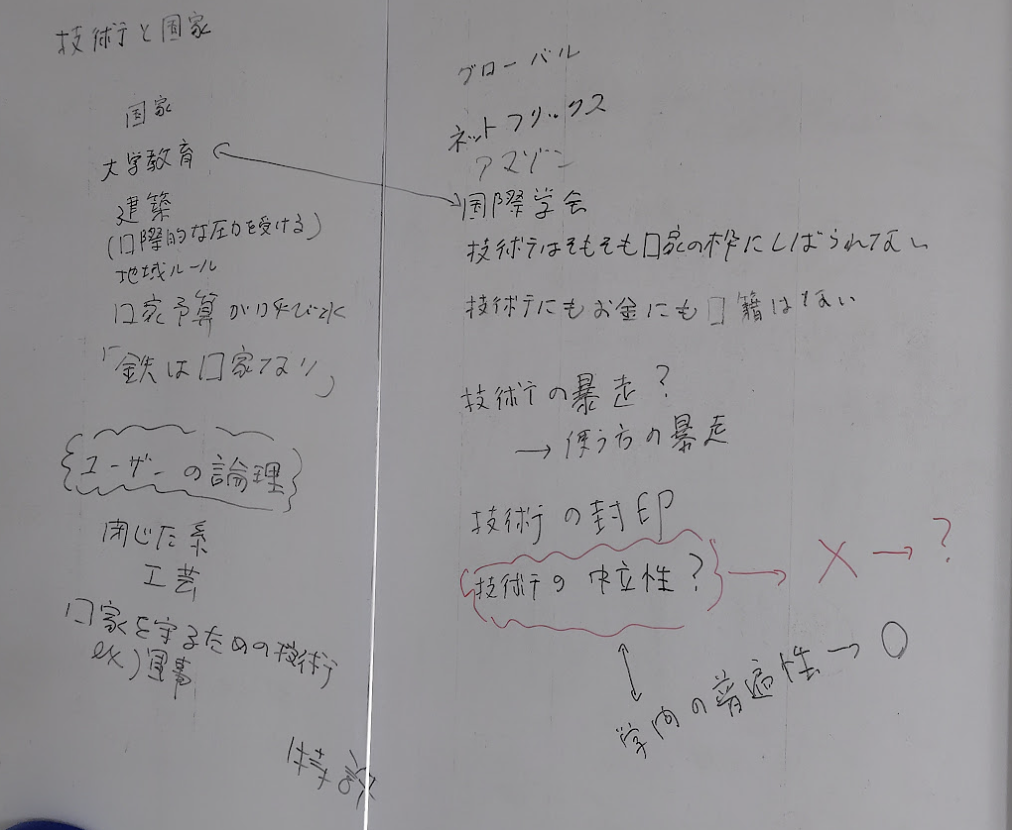 技術と国家
国家
大学教育
建築
(口際的な圧力を受ける)
地域ルール
口家予算が呼び水
「鉄は口家なり」
ユーザーの論理
閉じた系
工芸
口家を守るための技術
ex) 軍事
特許
グローバル
ネットフリックス
アマゾン
国際学会
技術はそもそも口家の枠にしばられてない
技術にもお金にも口籍はない
技術の暴走?
→ 使う方の暴走
技術の封印
技術の中立性? → X → ?
学問の普遍性 → ○